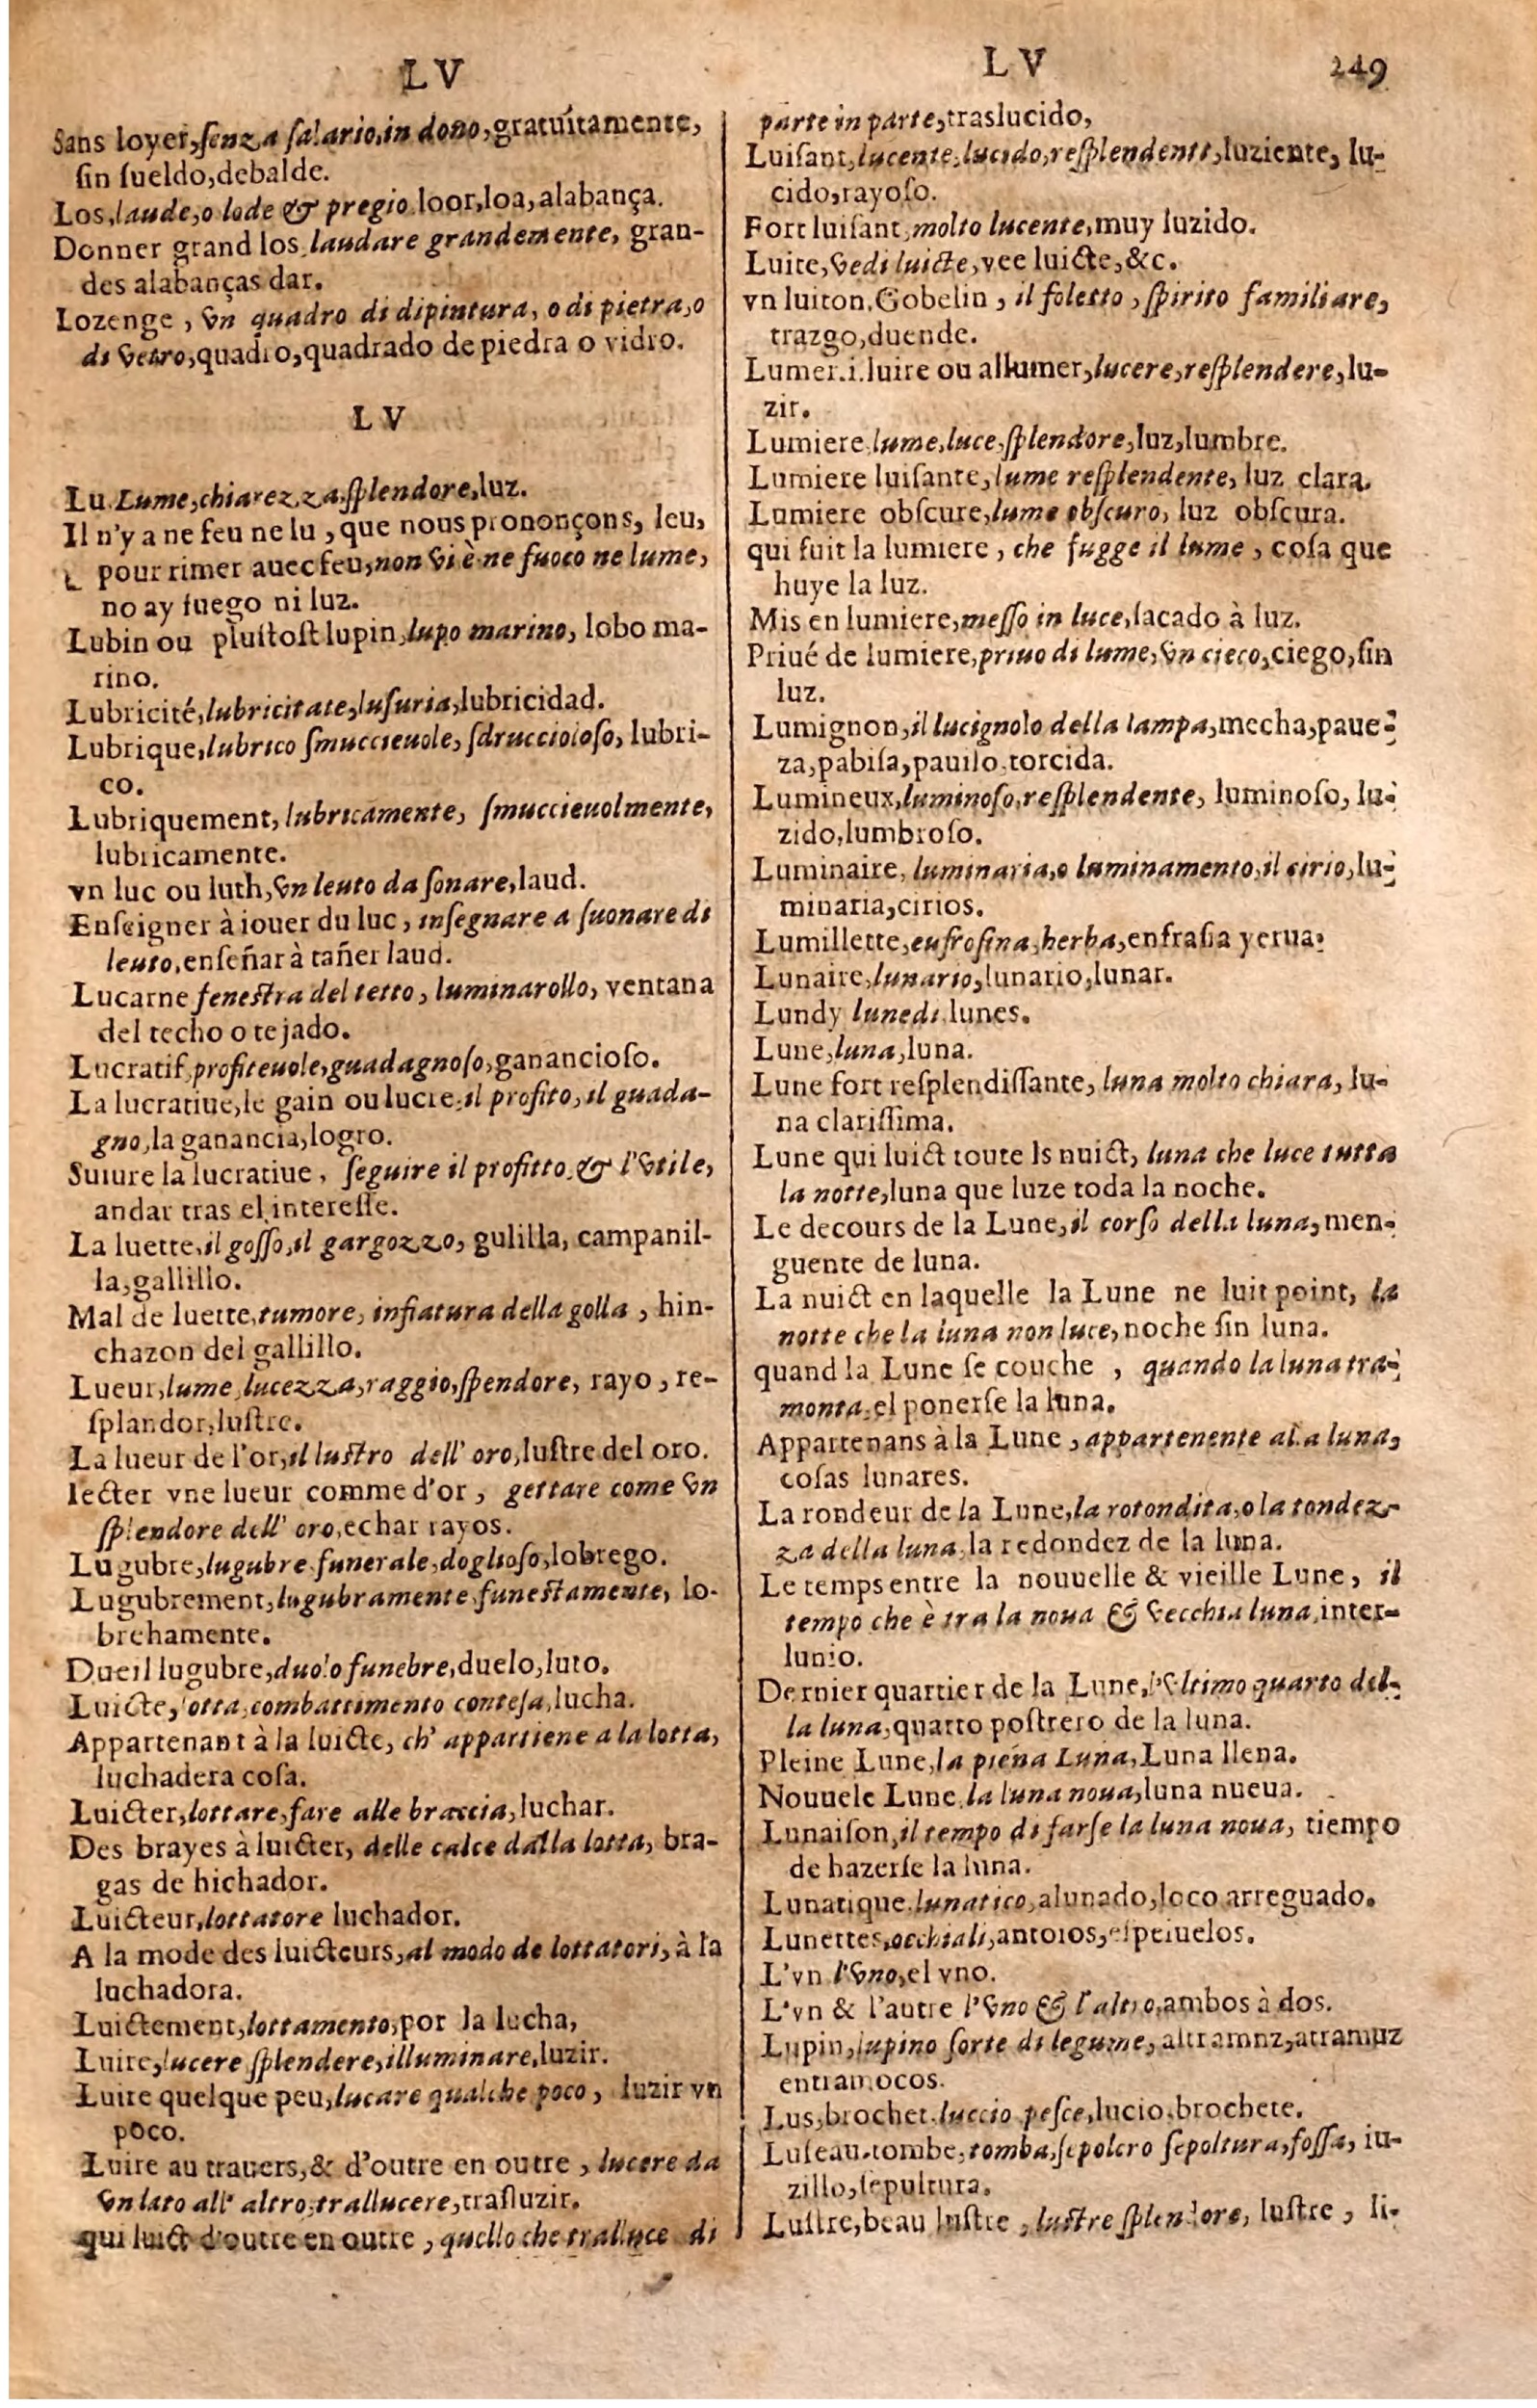 LV
Sans loyer, ſenza ſalario, in dono, gratuítamente,
ſin ſueldo, debalde.
Los, laude, o lode & pregio, loor, loa, alabança.
Donner grand los, laudare grandemente, gran-
des alabanças dar.
Lozenge, vn quadro di dipintura, o di pietra, o
di vetro, quadro, quadrado de piedra o vidro.
LV
Lu. Lume, chiarezza, ſplendore, luz.
Il n'y a ne feu ne lu, que nous prononçons, leu,
pour rimer auec feu, non vi è ne fuoco ne lume,
no ay fuego ni luz.
Lubin ou pluſtoſt lupin, lupo marino, lobo ma-
rino.
Lubricité, lubricitate, luſuria, lubricidad.
Lubrique, lubrico ſmuccieuole, ſdruccioloſo, lubri-
co.
Lubriquement, lubricamente, ſmuccieuolmente,
lubricamente.
vn luc ou luth, vn leuto da ſonare, laud.
Enſeigner à iouer du luc, inſegnare a ſuonare di
leuto, enſeñar à tañer laud.
Lucarne feneſtra del tetto, luminarollo, ventana
del techo o tejado.
Lucratif, profiteuole, guadagnoſo, gananciоſo.
La lucratiue, le gain ou lucre, il profito, il guada-
gno, la ganancia, logro.
Suiure la lucratiue, ſeguire il profitto, & l'vtile,
andar tras el intereſſe.
La luette, il goſſo, il gargozzo, gulilla, campanil-
la, gallillo.
Mal de luette, tumore, infiatura della golla, hin-
chazon del gallillo.
Lueur, lume, lucezza, raggio, ſpendore, rayo, re-
ſplandor, luſtre.
La lueur de l'or, il luſtro dell' oro, luſtre del oro.
Iecter vne lueur comme d'or, gettare come vn
ſplendore dell' oro, echar rayos.
Lugubre, lugubre, funerale, doglioſo, lobrego.
Lugubrement, lugubramente, funeſtamente, lo-
brehamente.
Dueil lugubre, duolo funebre, duelo, luto.
Luicte, lotta, combattimento conteſa, lucha.
Appartenant à la luicte, ch' appartiene a la lotta,
luchadera coſa.
Luicter, lottare, fare alle braccia, luchar.
Des brayes à luicter, delle calce dalla lotta, bra-
gas de hichador.
Luicteur, lottatore luchador.
A la mode des luicteurs, al modo de lottatori, à la
luchadora.
Luictement, lottamento, por la lucha,
Luire, lucere ſplendere, illuminare, luzir.
Luire quelque peu, lucare qualche poco, luzir vn
poco.
Luire au trauers, & d'outre en outre, lucere da
vn lato all' altro, trallucere, traſluzir.
qui luict d'outre en outre, quello che tralluce di
LV 249
parte in parte, traslucido,
Luiſant, lucente, lucido, reſplendente, luziente, lu-
cido, rayoſo.
Fort luiſant, molto lucente, muy luzido.
Luite, vedi luicte, vee luicte, &c.
vn luiton, Gobelin, il foletto, ſpirito familiare,
trazgo, duende.
Lumer. i. luire ou allumer, lucere, reſplendere, lu-
zir.
Lumiere, lume, luce, ſplendore, luz, lumbre.
Lumiere luiſante, lume reſplendente, luz clara.
Lumiere obſcure, lume obſcuro, luz obſcura.
qui fuit la lumiere, che fugge il lume, coſa que
huye la luz.
Mis en lumiere, meſſo in luce, ſacado à luz.
Priué de lumiere, priuo di lume, vn cieco, ciego, ſin
luz.
Lumignon, il lucignolo della lampa, mecha, paue-
za, pabiſa, pauilo, torcida.
Lumineux, luminoſo, reſplendente, luminoſo, lu-
zido, lumbroſo.
Luminaire, luminaria, o luminamento, il cirio, lu-
minaria, cirios.
Lumillette, eufroſina, herba, enfraſia yerua.
Lunaire, lunario, lunario, lunar.
Lundy lunedi, lunes.
Lune, luna, luna.
Lune fort reſplendiſſante, luna molto chiara, lu-
na clariſſima.
Lune qui luict toute ls nuict, luna che luce tutta
la notte, luna que luze toda la noche.
Le decours de la Lune, il corſo della luna, men-
guente de luna.
La nuict en laquelle la Lune ne luit point, la
notte che la luna non luce, noche ſin luna.
quand la Lune ſe couche, quando la luna tra-
monta, el ponerſe la luna.
Appartenans à la Lune, appartenente alla luna,
coſas lunares.
La rondeur de la Lune, la rotondita, o la tondez-
za della luna, la redondez de la luna.
Le temps entre la nouuelle & vieille Lune, il
tempo che è tra la noua & vecchia luna, inter-
lunio.
Dernier quartier de la Lune, l'vltimo quarto del-
la luna, quarto poſtrero de la luna.
Pleine Lune, la piena Luna, Luna llena.
Nouuele Lune, la luna noua, luna nueua.
Lunaiſon, il tempo di farſe la luna noua, tiempo
de hazerſe la luna.
Lunatique, lunatico, alunado, loco arreguado.
Lunettes, occhiali, antoios, eſpeiuelos.
L'vn l'vno, el vno.
L'vn & l'autre l'vno & l'altro, ambos à dos.
Lupin, lupino ſorte di legume, altramnz, atramuz
entramocos.
Lus, brochet, luccio peſce, lucio, brochete.
Luſeau, tombe, tomba, ſepolcro ſepoltura, foſſa, iu-
zillo, ſepultura.
Luſtre, beau luſtre, luſtre ſplendore, luſtre, li-